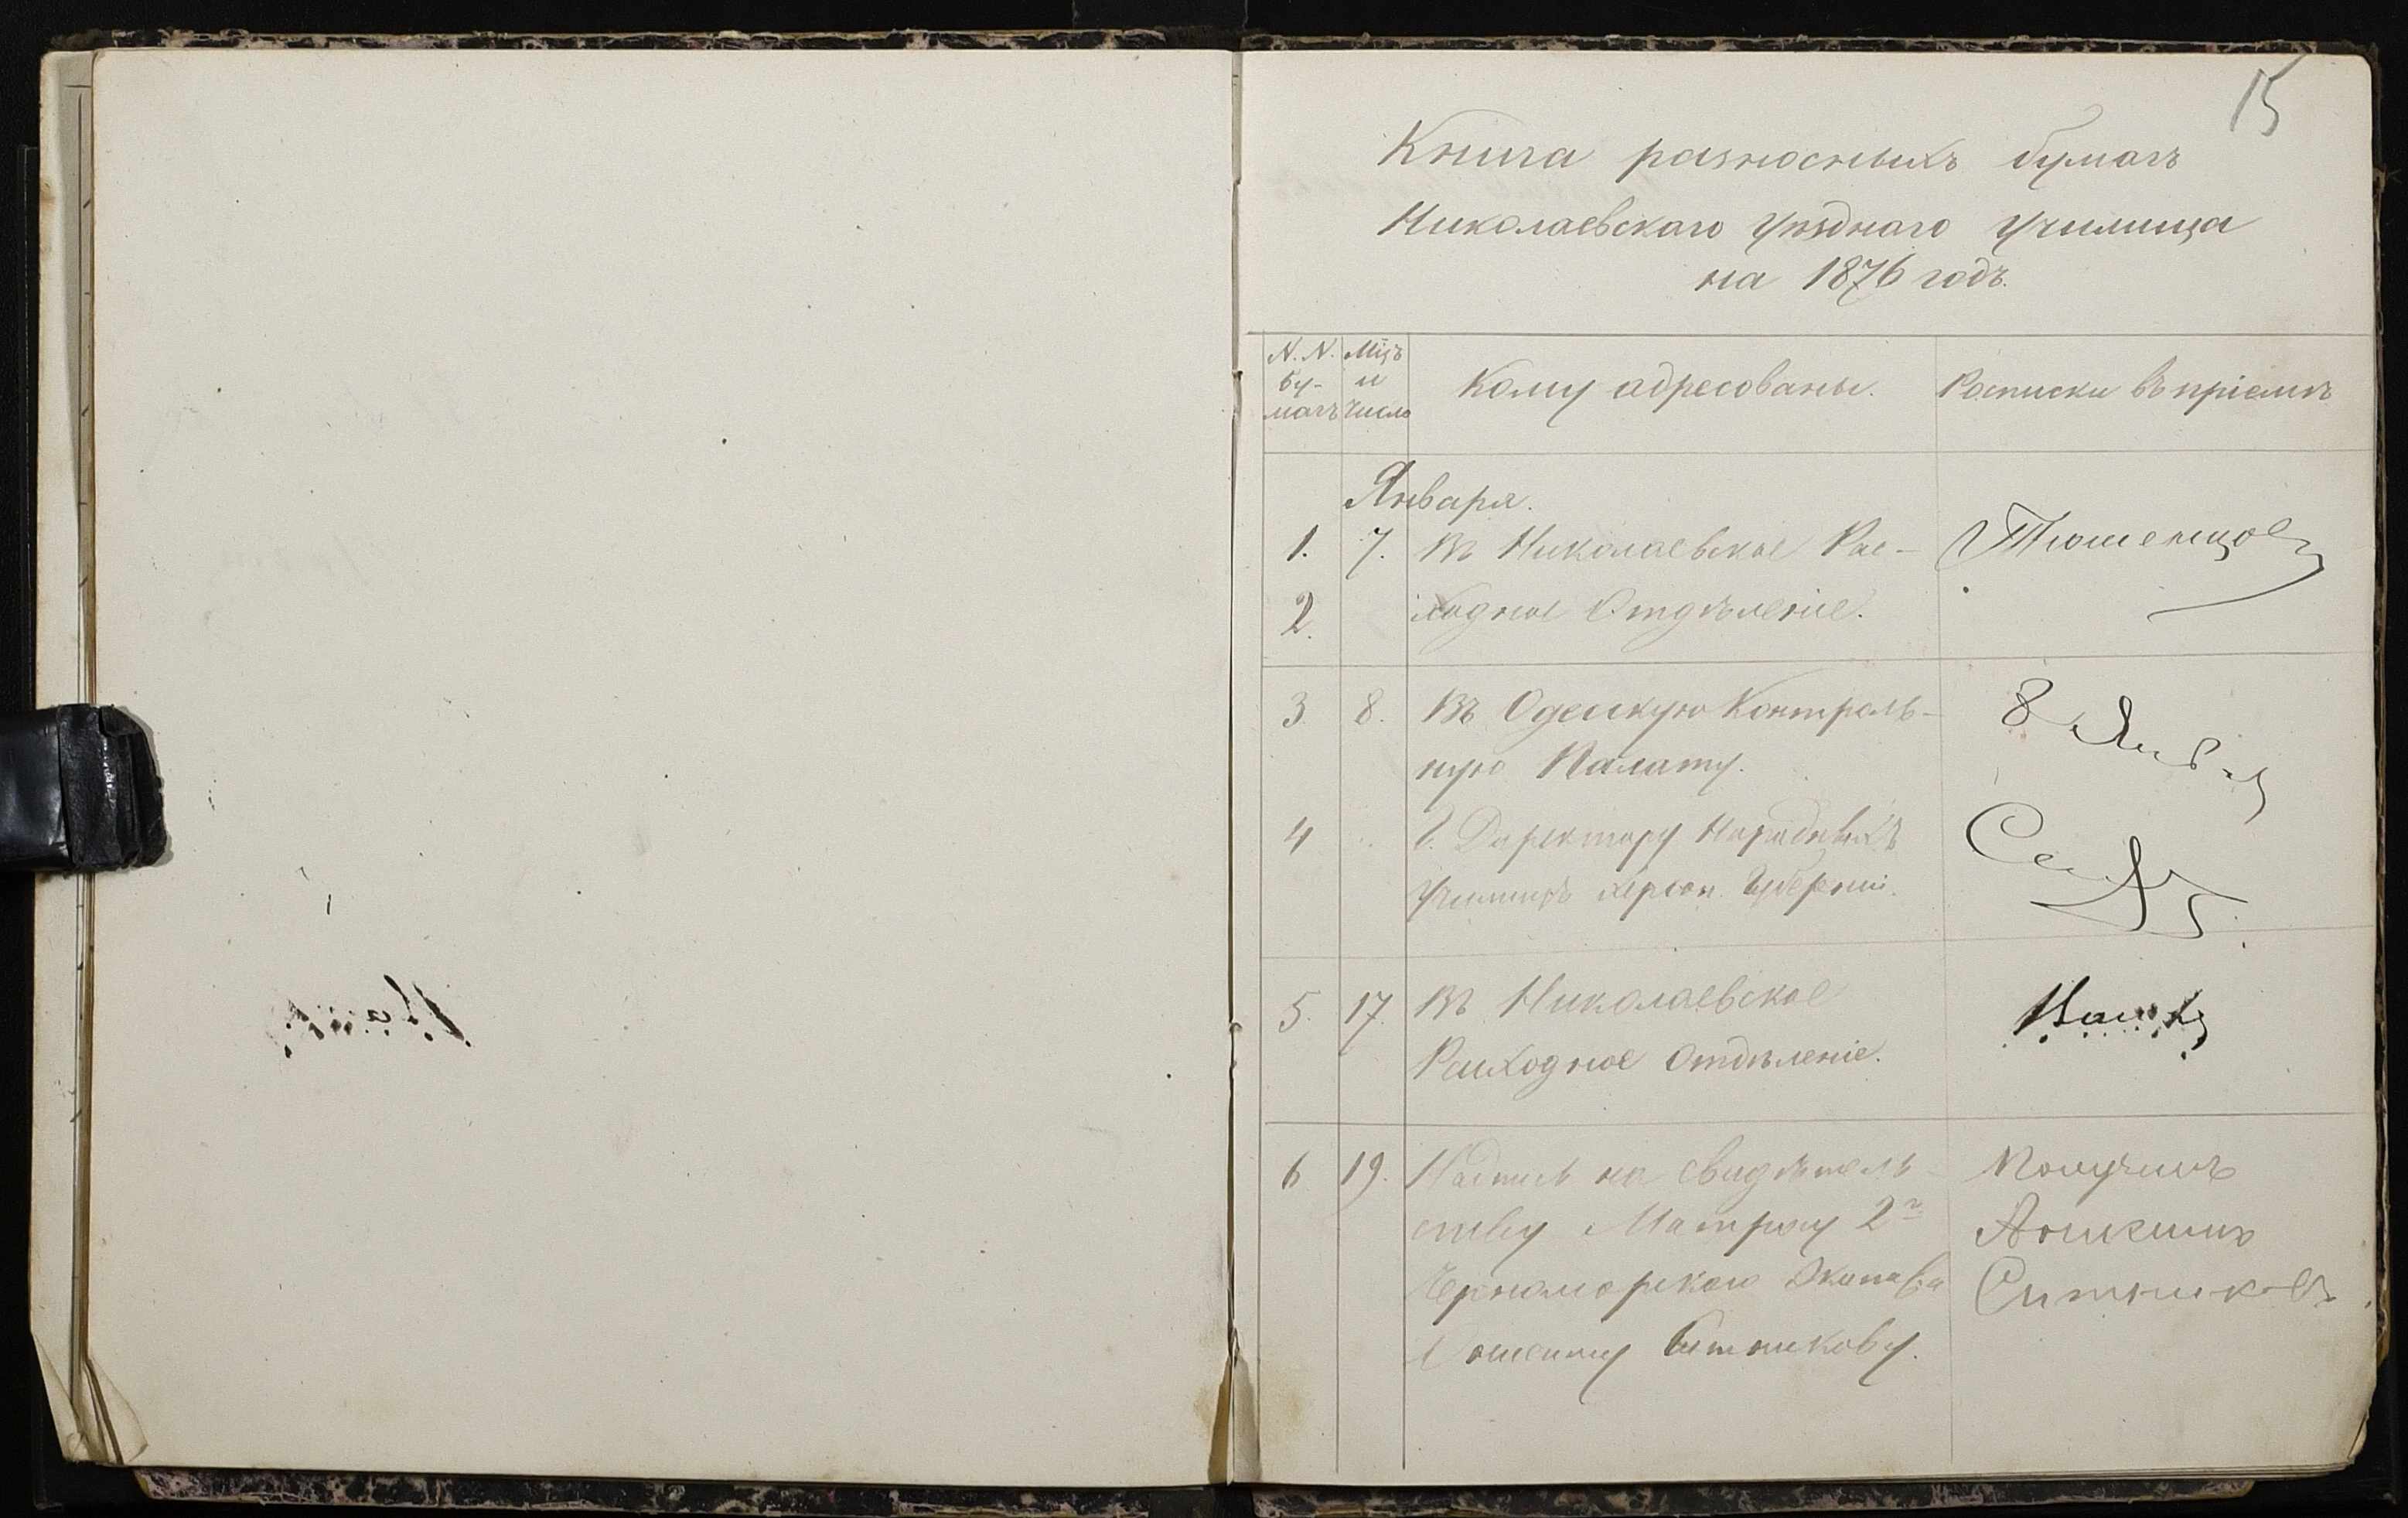 15
Книга разносныхъ бумагъ
Николаевскаго Уѣзднаго Училища
на 1876 годъ.
N.N. бумагъ
Мѣцъ и число
Кому адресованы.
Росписки въ пріемѣ
Января.
1. 7. Въ Николаевское Рас-
2. ходное Отдѣленіе.
3. 8. Въ Одесскую Контроль-
ную Палату.
8 Янв
4 Г. Директору Народныхъ
Училищъ Херсон. Губерніи.
5. 17. Въ Николаевское
Расходное Отдѣленіе.
6 19. Надпись на свидѣтель-
ству Матросу 2го
Черноморскаго Экипажа
Ситникову.
Получилъ
Ситниковъ